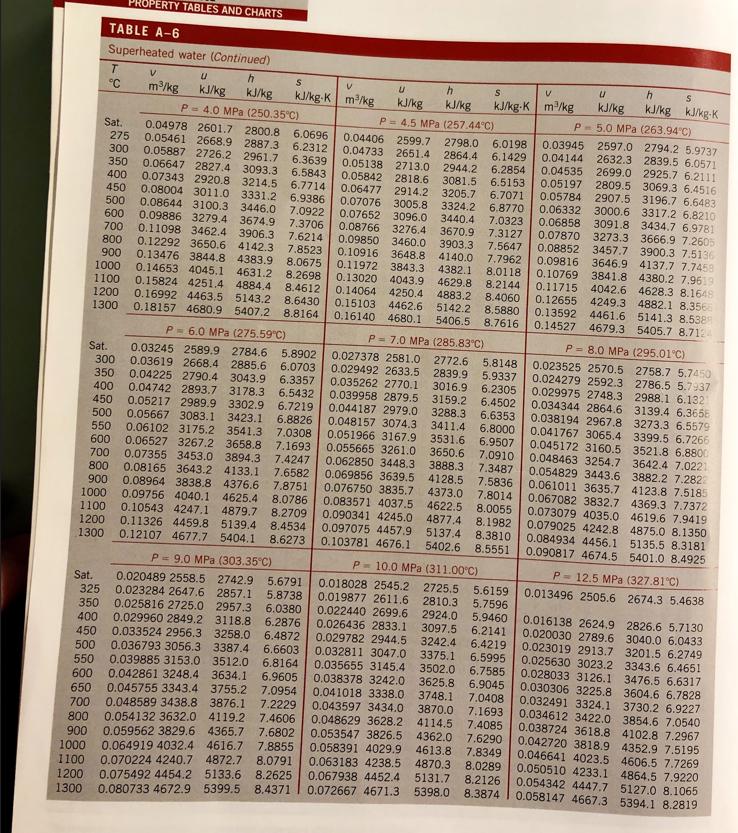 PROPERTY TABLES AND CHARTS
TABLE A–6
Superheated water (Continued)
T v u h s v u h s v u h s
°C m³/kg kJ/kg kJ/kg kJ/kg·K m³/kg kJ/kg kJ/kg kJ/kg·K m³/kg kJ/kg kJ/kg kJ/kg·K
P = 4.0 MPa (250.35°C) P = 4.5 MPa (257.44°C) P = 5.0 MPa (263.94°C)
Sat. 0.04978 2601.7 2800.8 6.0696 0.04406 2599.7 2798.0 6.0198 0.03945 2597.0 2794.2 5.9737
275 0.05461 2668.9 2887.3 6.2312 0.04733 2651.4 2864.4 6.1429 0.04144 2632.3 2839.5 6.0571
300 0.05887 2726.2 2961.7 6.3639 0.05138 2713.0 2944.2 6.2854 0.04535 2699.0 2925.7 6.2111
350 0.06647 2827.4 3093.3 6.5843 0.05842 2818.6 3081.5 6.5153 0.05197 2809.5 3069.3 6.4516
400 0.07343 2920.8 3214.5 6.7714 0.06477 2914.2 3205.7 6.7071 0.05784 2907.5 3196.7 6.6483
450 0.08004 3011.0 3331.2 6.9386 0.07076 3005.8 3324.2 6.8770 0.06332 3000.6 3317.2 6.8210
500 0.08644 3100.3 3446.0 7.0922 0.07652 3096.0 3440.4 7.0323 0.06858 3091.8 3434.7 6.9781
600 0.09886 3279.4 3674.9 7.3706 0.08766 3276.4 3670.9 7.3127 0.07870 3273.3 3666.9 7.2605
700 0.11098 3462.4 3906.3 7.6214 0.09850 3460.0 3903.3 7.5647 0.08852 3457.7 3900.3 7.5136
800 0.12292 3650.6 4142.3 7.8523 0.10916 3648.8 4140.0 7.7962 0.09816 3646.9 4137.7 7.7458
900 0.13476 3844.8 4383.9 8.0675 0.11972 3843.3 4382.1 8.0118 0.10769 3841.8 4380.2 7.9619
1000 0.14653 4045.1 4631.2 8.2698 0.13020 4043.9 4629.8 8.2144 0.11715 4042.6 4628.3 8.1648
1100 0.15824 4251.4 4884.4 8.4612 0.14064 4250.4 4883.2 8.4060 0.12655 4249.3 4882.1 8.3566
1200 0.16992 4463.5 5143.2 8.6430 0.15103 4462.6 5142.2 8.5880 0.13592 4461.6 5141.3 8.5388
1300 0.18157 4680.9 5407.2 8.8164 0.16140 4680.1 5406.5 8.7616 0.14527 4679.3 5405.7 8.7124
P = 6.0 MPa (275.59°C) P = 7.0 MPa (285.83°C) P = 8.0 MPa (295.01°C)
Sat. 0.03245 2589.9 2784.6 5.8902 0.027378 2581.0 2772.6 5.8148 0.023525 2570.5 2758.7 5.7450
300 0.03619 2668.4 2885.6 6.0703 0.029492 2633.5 2839.9 5.9337 0.024279 2592.3 2786.5 5.7937
350 0.04225 2790.4 3043.9 6.3357 0.035262 2770.1 3016.9 6.2305 0.029975 2748.3 2988.1 6.1321
400 0.04742 2893.7 3178.3 6.5432 0.039958 2879.5 3159.2 6.4502 0.034344 2864.6 3139.4 6.3658
450 0.05217 2989.9 3302.9 6.7219 0.044187 2979.0 3288.3 6.6353 0.038194 2967.8 3273.3 6.5579
500 0.05667 3083.1 3423.1 6.8826 0.048157 3074.3 3411.4 6.8000 0.041767 3065.4 3399.5 6.7266
550 0.06102 3175.2 3541.3 7.0308 0.051966 3167.9 3531.6 6.9507 0.045172 3160.5 3521.8 6.8800
600 0.06527 3267.2 3658.8 7.1693 0.055665 3261.0 3650.6 7.0910 0.048463 3254.7 3642.4 7.0221
700 0.07355 3453.0 3894.3 7.4247 0.062850 3448.3 3888.3 7.3487 0.054829 3443.6 3882.2 7.2822
800 0.08165 3643.2 4133.1 7.6582 0.069856 3639.5 4128.5 7.5836 0.061011 3635.7 4123.8 7.5185
900 0.08964 3838.8 4376.6 7.8751 0.076750 3835.7 4373.0 7.8014 0.067082 3832.7 4369.3 7.7372
1000 0.09756 4040.1 4625.4 8.0786 0.083571 4037.5 4622.5 8.0055 0.073079 4035.0 4619.6 7.9419
1100 0.10543 4247.1 4879.7 8.2709 0.090341 4245.0 4877.4 8.1982 0.079025 4242.8 4875.0 8.1350
1200 0.11326 4459.8 5139.4 8.4534 0.097075 4457.9 5137.4 8.3810 0.084934 4456.1 5135.5 8.3181
1300 0.12107 4677.7 5404.1 8.6273 0.103781 4676.1 5402.6 8.5551 0.090817 4674.5 5401.0 8.4925
P = 9.0 MPa (303.35°C) P = 10.0 MPa (311.00°C) P = 12.5 MPa (327.81°C)
Sat. 0.020489 2558.5 2742.9 5.6791 0.018028 2545.2 2725.5 5.6159 0.013496 2505.6 2674.3 5.4638
325 0.023284 2647.6 2857.1 5.8738 0.019877 2611.6 2810.3 5.7596
350 0.025816 2725.0 2957.3 6.0380 0.022440 2699.6 2924.0 5.9460 0.016138 2624.9 2826.6 5.7130
400 0.029960 2849.2 3118.8 6.2876 0.026436 2833.1 3097.5 6.2141 0.020030 2789.6 3040.0 6.0433
450 0.033524 2956.3 3258.0 6.4872 0.029782 2944.5 3242.4 6.4219 0.023019 2913.7 3201.5 6.2749
500 0.036793 3056.3 3387.4 6.6603 0.032811 3047.0 3375.1 6.5995 0.025630 3023.2 3343.6 6.4651
550 0.039885 3153.0 3512.0 6.8164 0.035655 3145.4 3502.0 6.7585 0.028033 3126.1 3476.5 6.6317
600 0.042861 3248.4 3634.1 6.9605 0.038378 3242.0 3625.8 6.9045 0.030306 3225.8 3604.6 6.7828
650 0.045755 3343.4 3755.2 7.0954 0.041018 3338.0 3748.1 7.0408 0.032491 3324.1 3730.2 6.9227
700 0.048589 3438.8 3876.1 7.2229 0.043597 3434.0 3870.0 7.1693 0.034612 3422.0 3854.6 7.0540
800 0.054132 3632.0 4119.2 7.4606 0.048629 3628.2 4114.5 7.4085 0.038724 3618.8 4102.8 7.2967
900 0.059562 3829.6 4365.7 7.6802 0.053547 3826.5 4362.0 7.6290 0.042720 3818.9 4352.9 7.5195
1000 0.064919 4032.4 4616.7 7.8855 0.058391 4029.9 4613.8 7.8349 0.046641 4023.5 4606.5 7.7269
1100 0.070224 4240.7 4872.7 8.0791 0.063183 4238.5 4870.3 8.0289 0.050510 4233.1 4864.5 7.9220
1200 0.075492 4454.2 5133.6 8.2625 0.067938 4452.4 5131.7 8.2126 0.054342 4447.7 5127.0 8.1065
1300 0.080733 4672.9 5399.5 8.4371 0.072667 4671.3 5398.0 8.3874 0.058147 4667.3 5394.1 8.2819